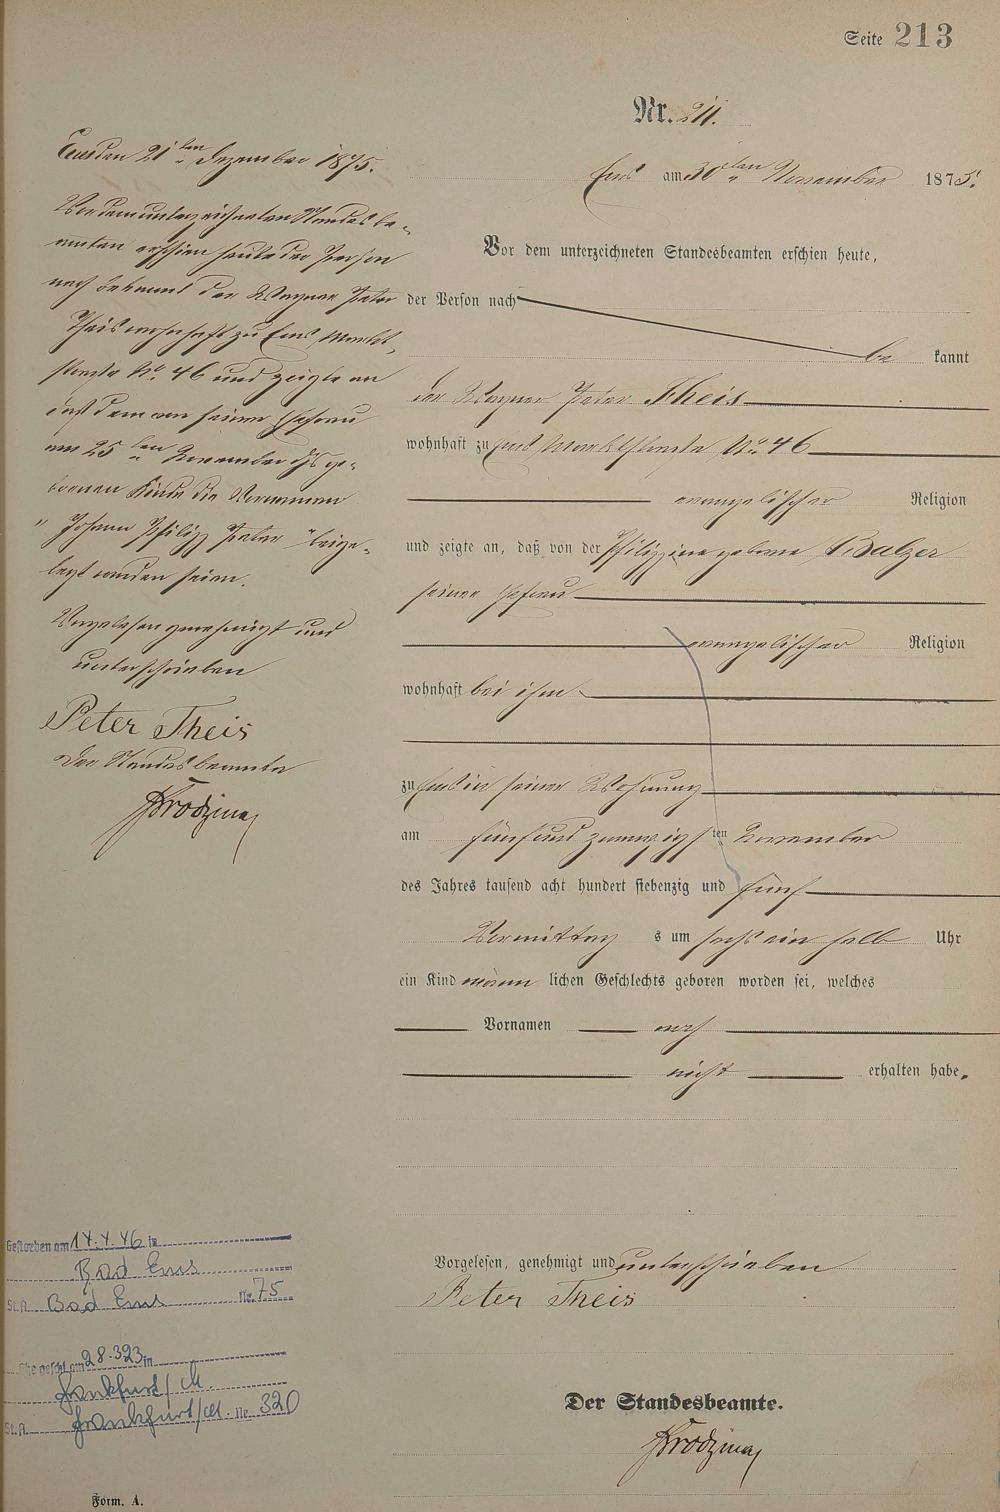 Seite 213
Nr. 211.
Ems am 30ten November 1875.
Vor dem unterzeichneten Standesbeamten erschien heute,
der Person nach
be kannt
der Wagner Peter Theis
wohnhaft zu Ems Marktstraße No. 46
evangelischer Religion
und zeigte an, daß von der Philippine geborne Balzer
seiner Ehefrau
evangelischer Religion
wohnhaft bei ihm
zu Ems in seiner Wohnung
am fünfundzwanzigsten November
des Jahres tausend acht hundert siebenzig und fünf
Vormittags um sechs ein halb Uhr
ein Kind männlichen Geschlechts geboren worden sei, welches
Vornamen noch
nicht erhalten habe.
Vorgelesen, genehmigt und unterschrieben
Peter Theis
Der Standesbeamte.
Ems den 21ten Dezember 1875.
Vor dem unterzeichneten Standesbe-
amten erschien heute der Person
nach bekannt der Wagner Peter
Theis wohnhaft zu Ems, Markt-
straße No. 46 und zeigte an
daß dem von seiner Ehefrau
am 25ten November ds ge-
borenen Kinde die Vornamen
"Johann Philipp Peter" beige-
legt worden seien.
Vorgelesen genehmigt und
unterschrieben
Peter Theis
Der Standesbeamte
Gestorben am 14.4.46 in
Bad Ems
St.A. Bad Ems Nr. 75
Ehe geschl. am 28.3.23 in
Frankfurt/M.
St.A. Frankfurt/M. Nr. 320
Form. A.